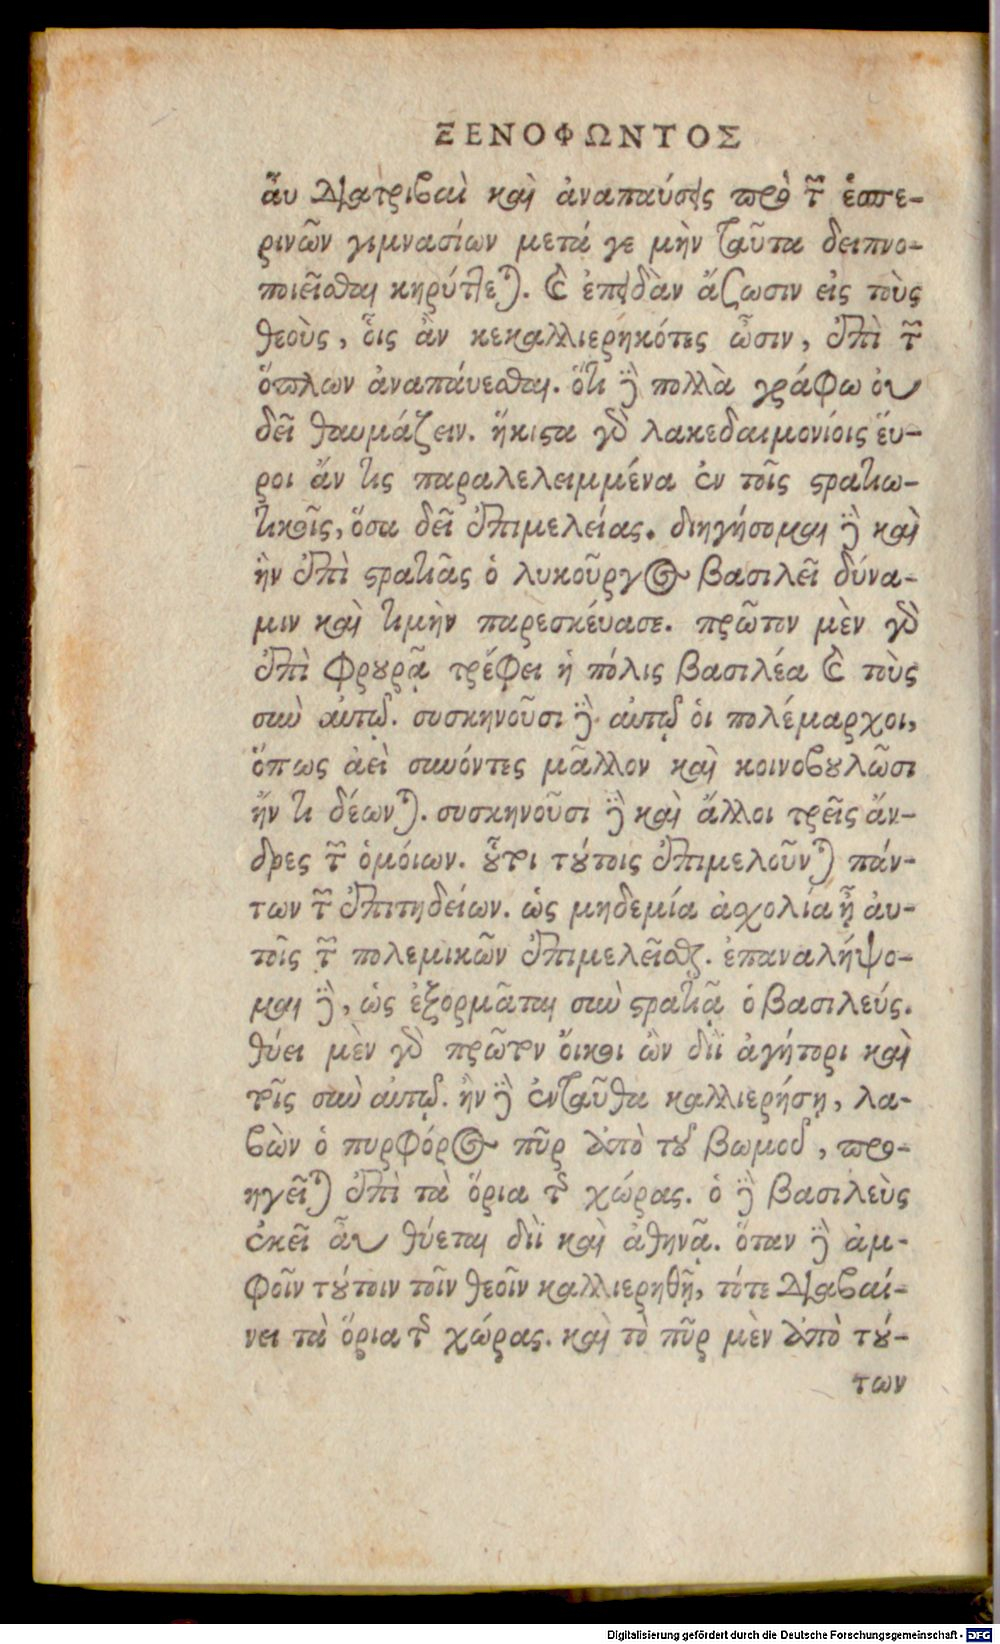 ΞΕΝΟΦΩΝΤΟΣ
ἄυ διατριβαὶ καὶ ἀναπαύσεις πρὸ τῶν ἑσπε-
ρινῶν γιμνασίων μετά γε μὴν ταῦτα δειπνο-
ποιεῖσθαι κηρύττεται. καὶ ἐπειδὰν ᾄζωσιν εἰς τοὺς
θεοὺς, ὅις ἂν κεκαλλιερηκότες ὦσιν, ἐπὶ τῶν
ὅπλων ἀναπάυεσθαι. ὅτι δὲ πολλὰ γράφω ὀυ
δεῖ θαυμάζειν. ἥκιστα γὰρ λακεδαιμονίοις ἕυ-
ροι ἄν τις παραλελειμμένα ἐν τοῖς στρατιω-
τικοῖς, ὅσα δεῖ ἐπιμελείας. διηγήσομαι δὲ καὶ
ἣν ἐπὶ στρατιᾶς ὁ λυκοῦργος βασιλεῖ δύνα-
μιν καὶ τιμὴν παρεσκέυασε. πρῶτον μὲν γὰρ
ἐπὶ φρουρᾷ τρέφει ἡ πόλις βασιλέα καὶ τοὺς
σὺν ἀυτῷ. συσκηνοῦσι δὲ ἀυτῷ ὁι πολέμαρχοι,
ὅπως ἀεὶ συνόντες μᾶλλον καὶ κοινοβουλῶσι
ἤν τι δέωνται. συσκηνοῦσι δὲ καὶ ἄλλοι τρεῖς ἄν-
δρες τῶν ὁμόιων. οὗτοι τούτοις ἐπιμελοῦνται πάν-
των τῶν ἐπιτηδείων. ὡς μηδεμία ἀχολία ᾖ ἀυ-
τοῖς τῶν πολεμικῶν ἐπιμελεῖσθαι. ἐπαναλήψο-
μαι δὲ, ὡς ἐξορμᾶται σὺν στρατιᾷ ὁ βασιλεύς.
θύει μὲν γὰρ πρῶτον ὄικοι ὢν διῒ ἀγήτορι καὶ
τοῖς σὺν ἀυτῷ. ἢν δὲ ἐνταῦθα καλλιερήσῃ, λα-
βὼν ὁ πυρφόρος πῦρ ἀπὸ τοῦ βωμοῦ, προ-
ηγεῖται ἐπὶ τὰ ὅρια τῆς χώρας. ὁ δὲ βασιλεὺς
ἐκεῖ ἆυ θύεται διῒ καὶ ἀθηνᾷ. ὅταν δὲ ἀμ-
φοῖν τούτοιν τοῖν θεοῖν καλλιερηθῇ, τότε διαβαί-
νει τὰ ὅρια τῆς χώρας. καὶ τὸ πῦρ μὲν ἀπὸ τού-
των
Digitalisierung gefördert durch die Deutsche Forschungsgemeinschaft - DFG